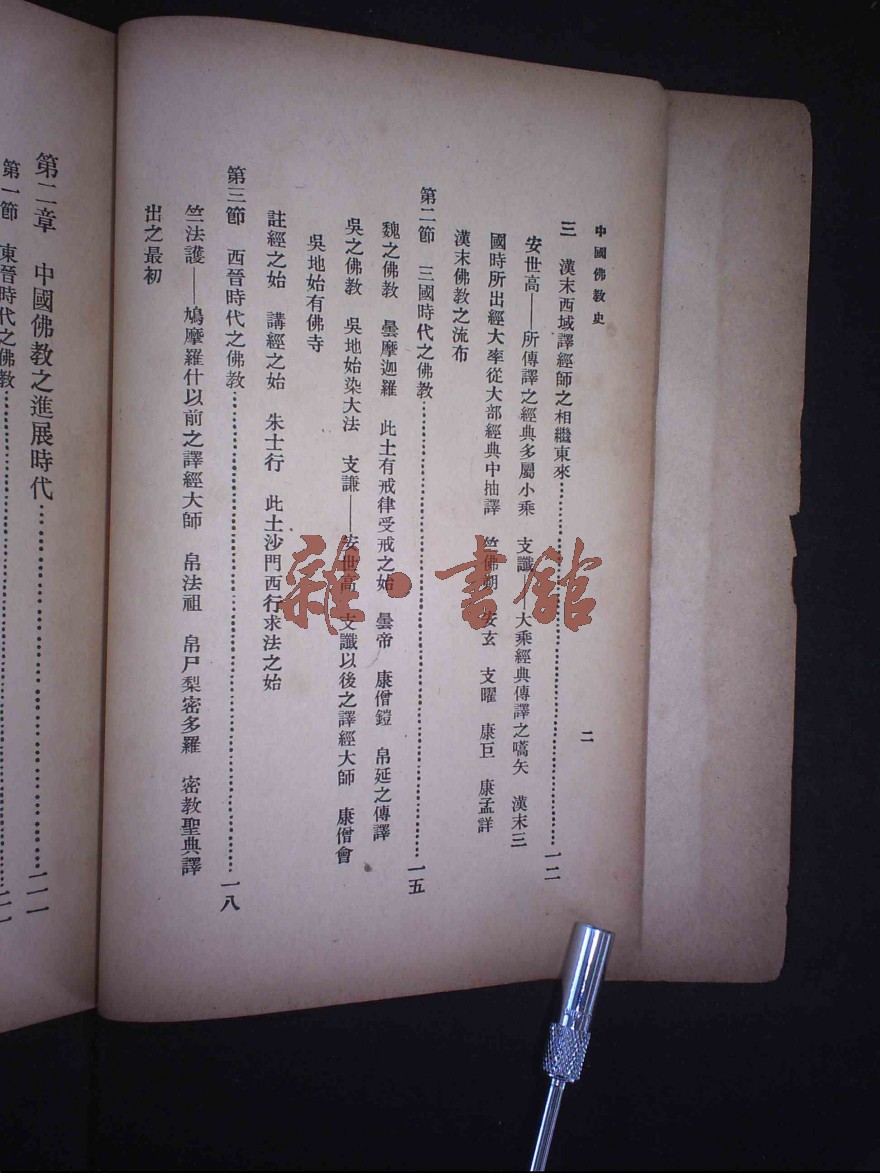 中國佛教史
二
三　漢末西域譯經師之相繼東來⋯⋯⋯⋯⋯⋯⋯⋯一二
安世高——所傳譯之經典多屬小乘　支讖——大乘經典傳譯之嚆矢　漢末三
國時所出經大率從大部經典中抽譯　竺佛朔　安玄　支曜　康巨　康孟詳
漢末佛教之流布
第二節　三國時代之佛教⋯⋯⋯⋯⋯⋯⋯⋯一五
魏之佛教　曇摩迦羅　此土有戒律受戒之始　曇帝　康僧鎧　帛延之傳譯
吳之佛教　吳地始染大法　支謙——安世高　支讖以後之譯經大師　康僧會
吳地始有佛寺
註經之始　講經之始　朱士行　此土沙門西行求法之始
第三節　西晉時代之佛教⋯⋯⋯⋯⋯⋯⋯⋯一八
竺法護——鳩摩羅什以前之譯經大師　帛法祖　帛尸梨密多羅　密教聖典譯
出之最初
第二章　中國佛教之進展時代⋯⋯⋯⋯⋯⋯⋯⋯二一
第一節　東晉時代之佛教⋯⋯⋯⋯⋯⋯⋯⋯二一
雜·書館